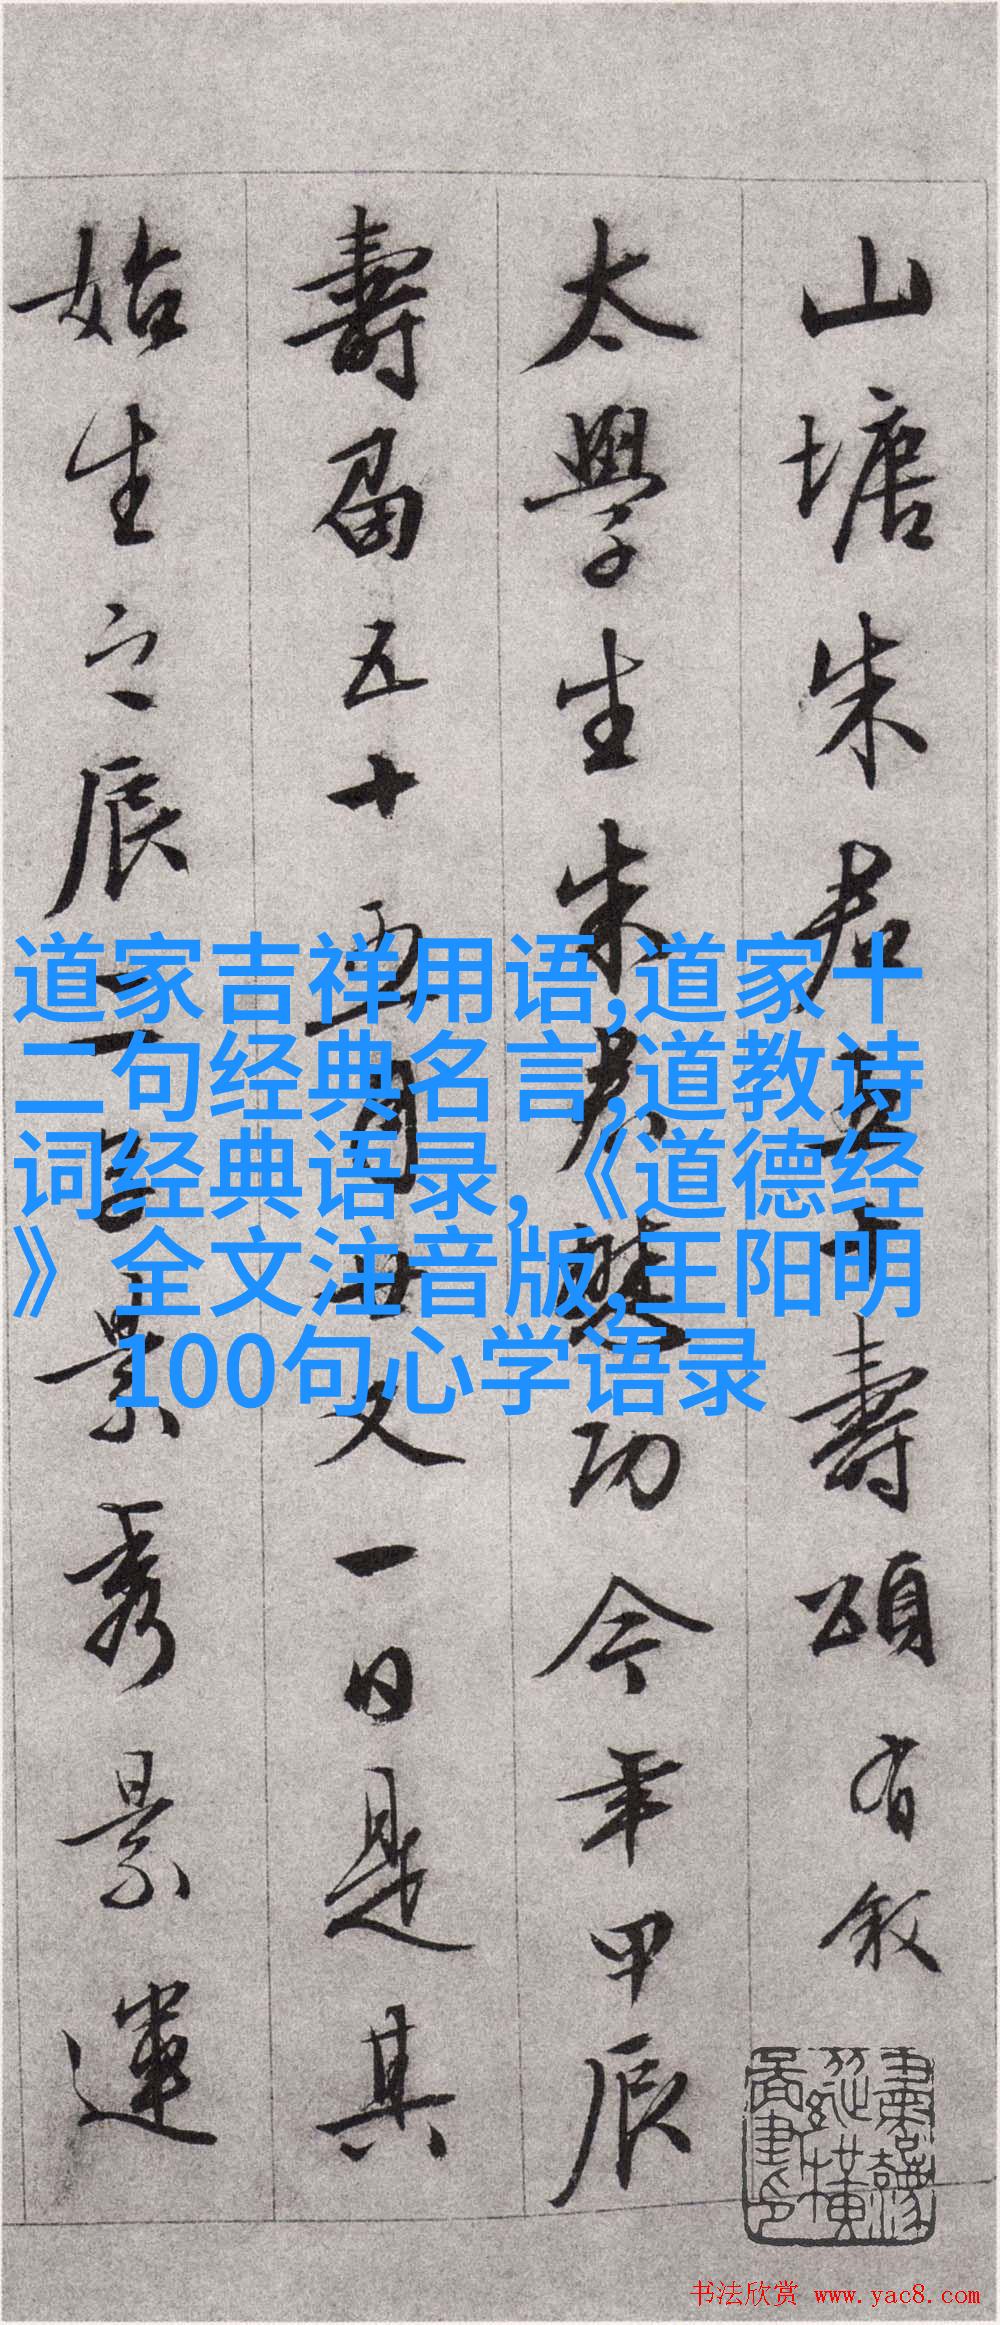 山塘朱君五十壽頌有叙
太學生朱君懋功今年甲辰
壽屆五十五月廿又一日是其
始生之辰景秀景運
道家吉祥用语,道家十
二句经典名言,道教诗
词经典语录,《道德经
》全文注音版,王阳明
100句心学语录
书法欣赏 www.yac8.com